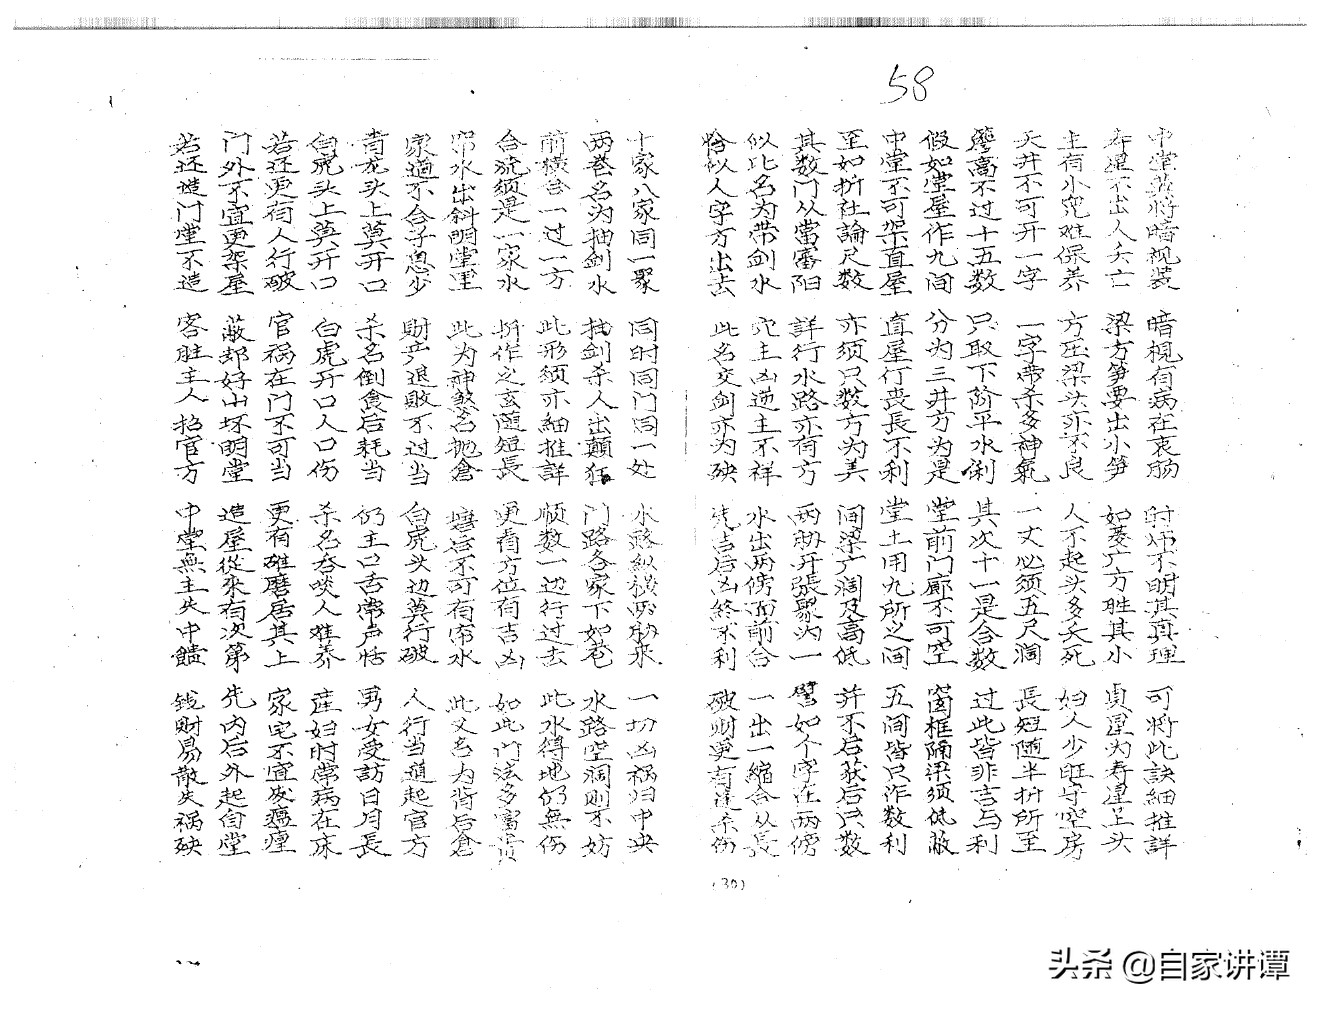 58
中堂莫将暗視装 暗視有病在衷腸 时师不明其真理 可将此訣細推詳
寿星不出人夭亡 梁方笋要出小笋 如菱广方胜其小 貞星为寿星呈头
主有小児难保养 方压梁头亦不良 人不起头多夭死 妇人少旺守空房
天井不可开一字 一字带杀多神氣 一丈必须五尺澗 長短随半折所至
簷高不过十五数 只取下阶平水测 其次十一是合数 过此皆非吉与利
假如堂屋作九间 分为三井方为是 堂前门廊不可空 窗框隔梁须低蔽
中堂不可架直屋 直屋仃丧長不利 堂土用九所之间 五间皆只作数利
至如折社論尺数 亦须只数方为美 间梁广濶及高低 并不后获后只数
其数门从當審阳 詳行水路亦有方 两肋开張聚为一 譬如个字在两傍
似此名为带剑水 穴主凶逆主不祥 水出两傍面前合 一出一縮合从長
恰似人字方出去 此名交剑亦为殃 先吉后凶終不利 破财更有逢杀伤
(30)
十家八家同一聚 同时同门同一处 水路纵横两肋来 一切凶祸归中央
两巷名为抽剑水 抽剑杀人出顛狂 门路各家下如巷 水路空洞则不妨
前横合一过一方 此形须亦細推詳 顺数一边行过去 此水得地仍無伤
合流须是一家水 折作之玄随短長 更看方位有吉凶 如此门法多富貴
帘水出斜明堂里 此为神煞名抛倉 簷后不可有帘水 此又名为背后倉
家道不合子息少 财产退敗不过当 白虎头边莫行破 人行当道起官方
青龙头上莫开口 杀名倒食后耗当 仍主口舌常声恬 男女受訪日月長
白虎头上莫开口 白虎开口人口伤 杀名吞啖人难养 産妇时常病在床
若还更有人行破 官祸在门不可当 更有碓磨居其上 家宅不宜发瘟瘴
门外不宜更架屋 蔽却好山坏明堂 造屋從来有次第 先内后外起自堂
若还造门堂不造 客胜主人招官方 中堂無主失中饋 钱财易散失祸殃
头条 @自家讲谭